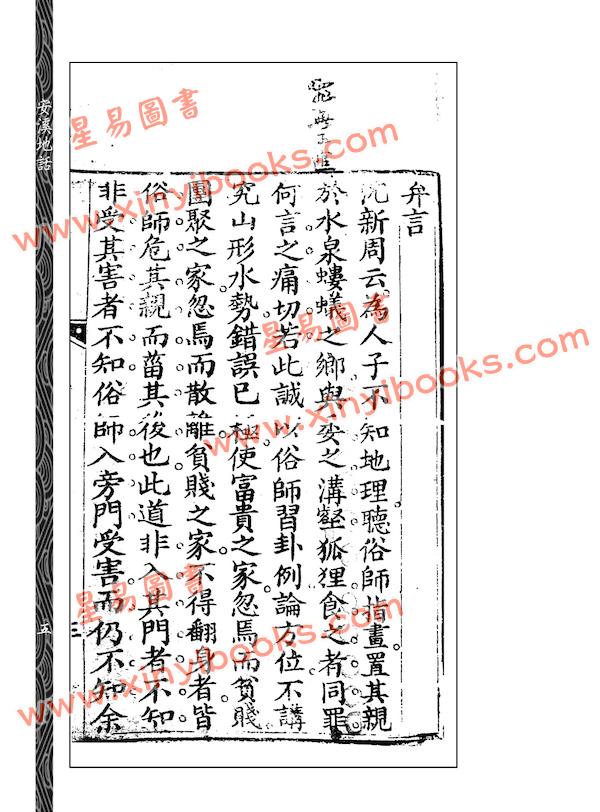 弁言
沈新周云為人子不知地理聽俗師指畫置其親
於水泉螻蟻之鄉與委之溝壑狐狸食之者同罪
何言之痛切若此誠以俗師習卦例論方位不講
究山形水勢錯誤已極使富貴之家忽焉而貧賤
團聚之家忽焉而散離貧賤之家不得翻身者皆
俗師危其親而菑其後也此道非入其門者不知
非受其害者不知俗師入旁門受害而仍不知余
安溪地話
五
星易圖書
www.xinyibooks.com
星易圖書
www.xinyibooks.com
星易圖書
www.xinyibooks.com